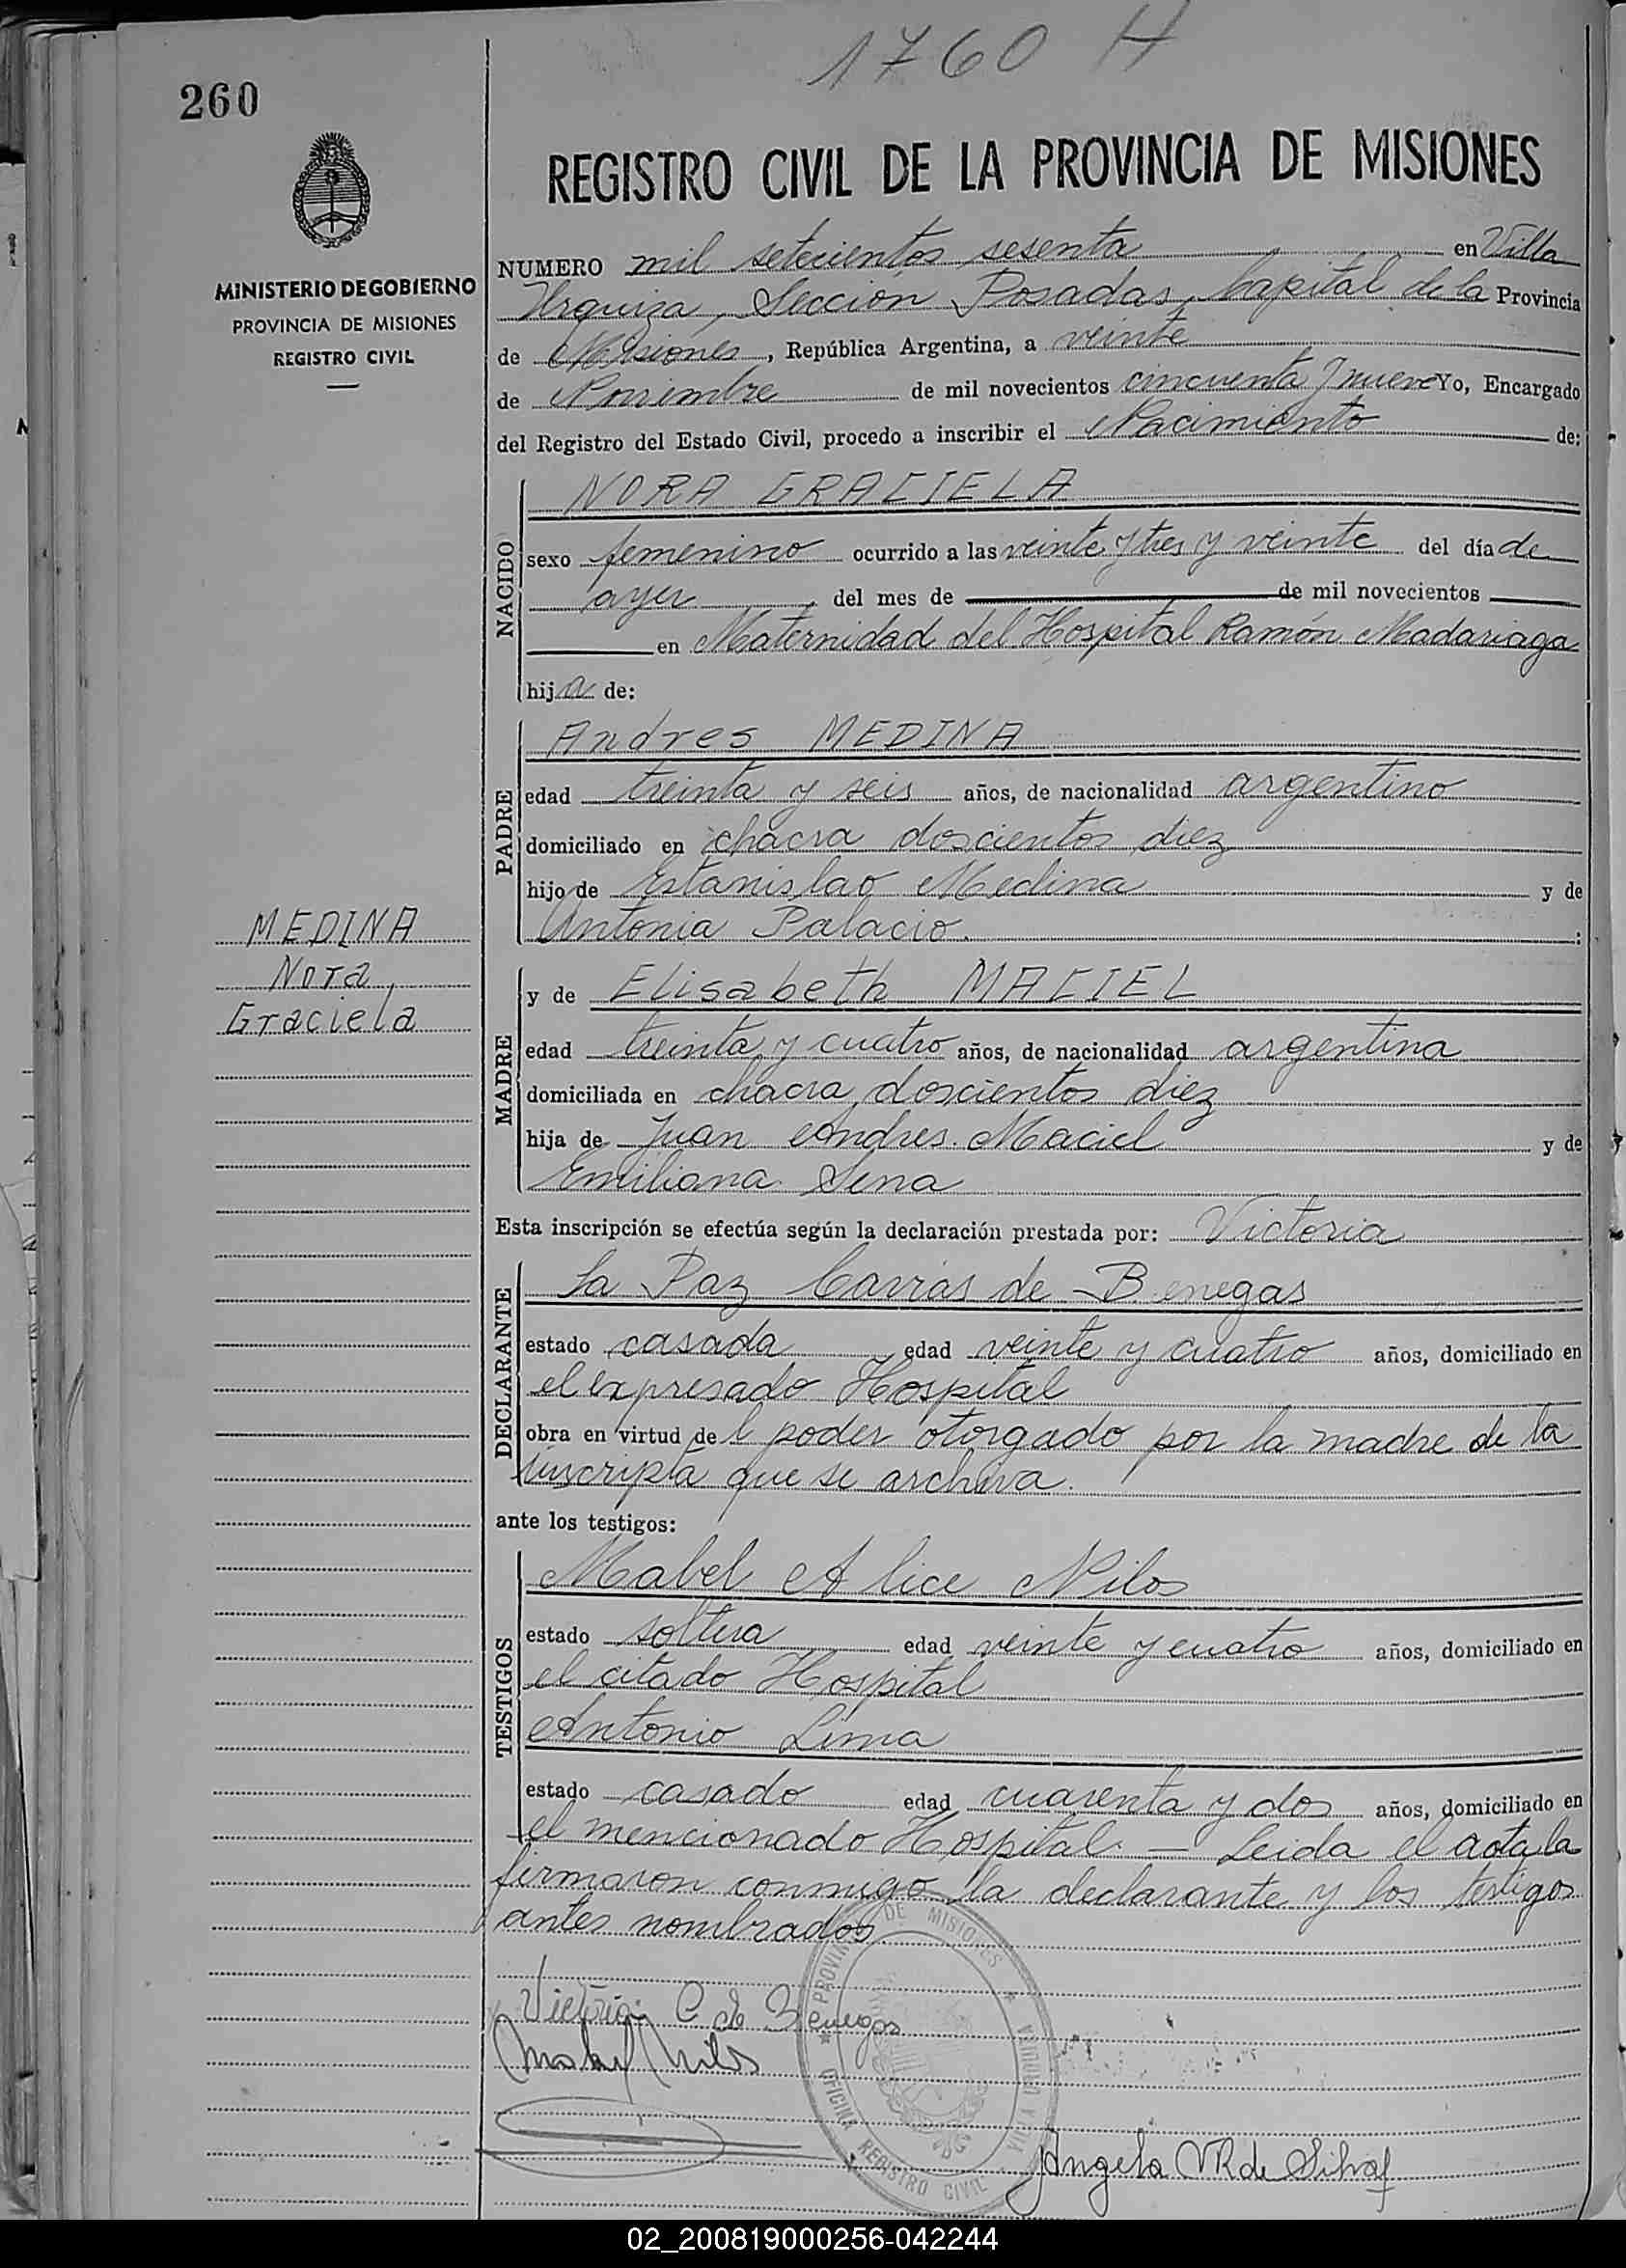 1760 H
260
REGISTRO CIVIL DE LA PROVINCIA DE MISIONES
MINISTERIO DE GOBIERNO
PROVINCIA DE MISIONES
REGISTRO CIVIL
NUMERO mil setecientos sesenta en Villa
Urquiza, Sección Posadas, Capital de la Provincia
de Misiones, República Argentina, a veinte
de Noviembre de mil novecientos cincuenta y nueve Yo, Encargado
del Registro del Estado Civil, procedo a inscribir el Nacimiento de:
NACIDO
NORA GRACIELA
sexo femenino ocurrido a las veinte y tres y veinte del día de
ayer del mes de de mil novecientos
en Maternidad del Hospital Ramón Madariaga
hija de:
PADRE
Andres MEDINA
edad treinta y seis años, de nacionalidad argentino
domiciliado en chacra doscientos diez
hijo de Estanislao Medina y de
Antonia Palacio. :
MEDINA
Nora
Graciela
MADRE
y de Elisabeth MACIEL
edad treinta y cuatro años, de nacionalidad argentina
domiciliada en chacra doscientos diez
hija de Juan Andres Maciel y de
Emiliana Sena
Esta inscripción se efectúa según la declaración prestada por: Victoria
DECLARANTE
La Paz Carras de Benegas
estado casada edad veinte y cuatro años, domiciliado en
el expresado Hospital
obra en virtud del poder otorgado por la madre de la
inscripta que se archiva.
ante los testigos:
TESTIGOS
Mabel Alice Nilos
estado soltera edad veinte y cuatro años, domiciliado en
el citado Hospital
Antonio Lima
estado casado edad cuarenta y dos años, domiciliado en
el mencionado Hospital. — Leida el acta la
firmaron conmigo la declarante y los testigos
antes nombrados.
Victoria C de Benegas
Mabel Nilos
PROVINCIA DE MISIONES
OFICINA REGISTRO CIVIL
Angela VR de Silva
02_200819000256-042244